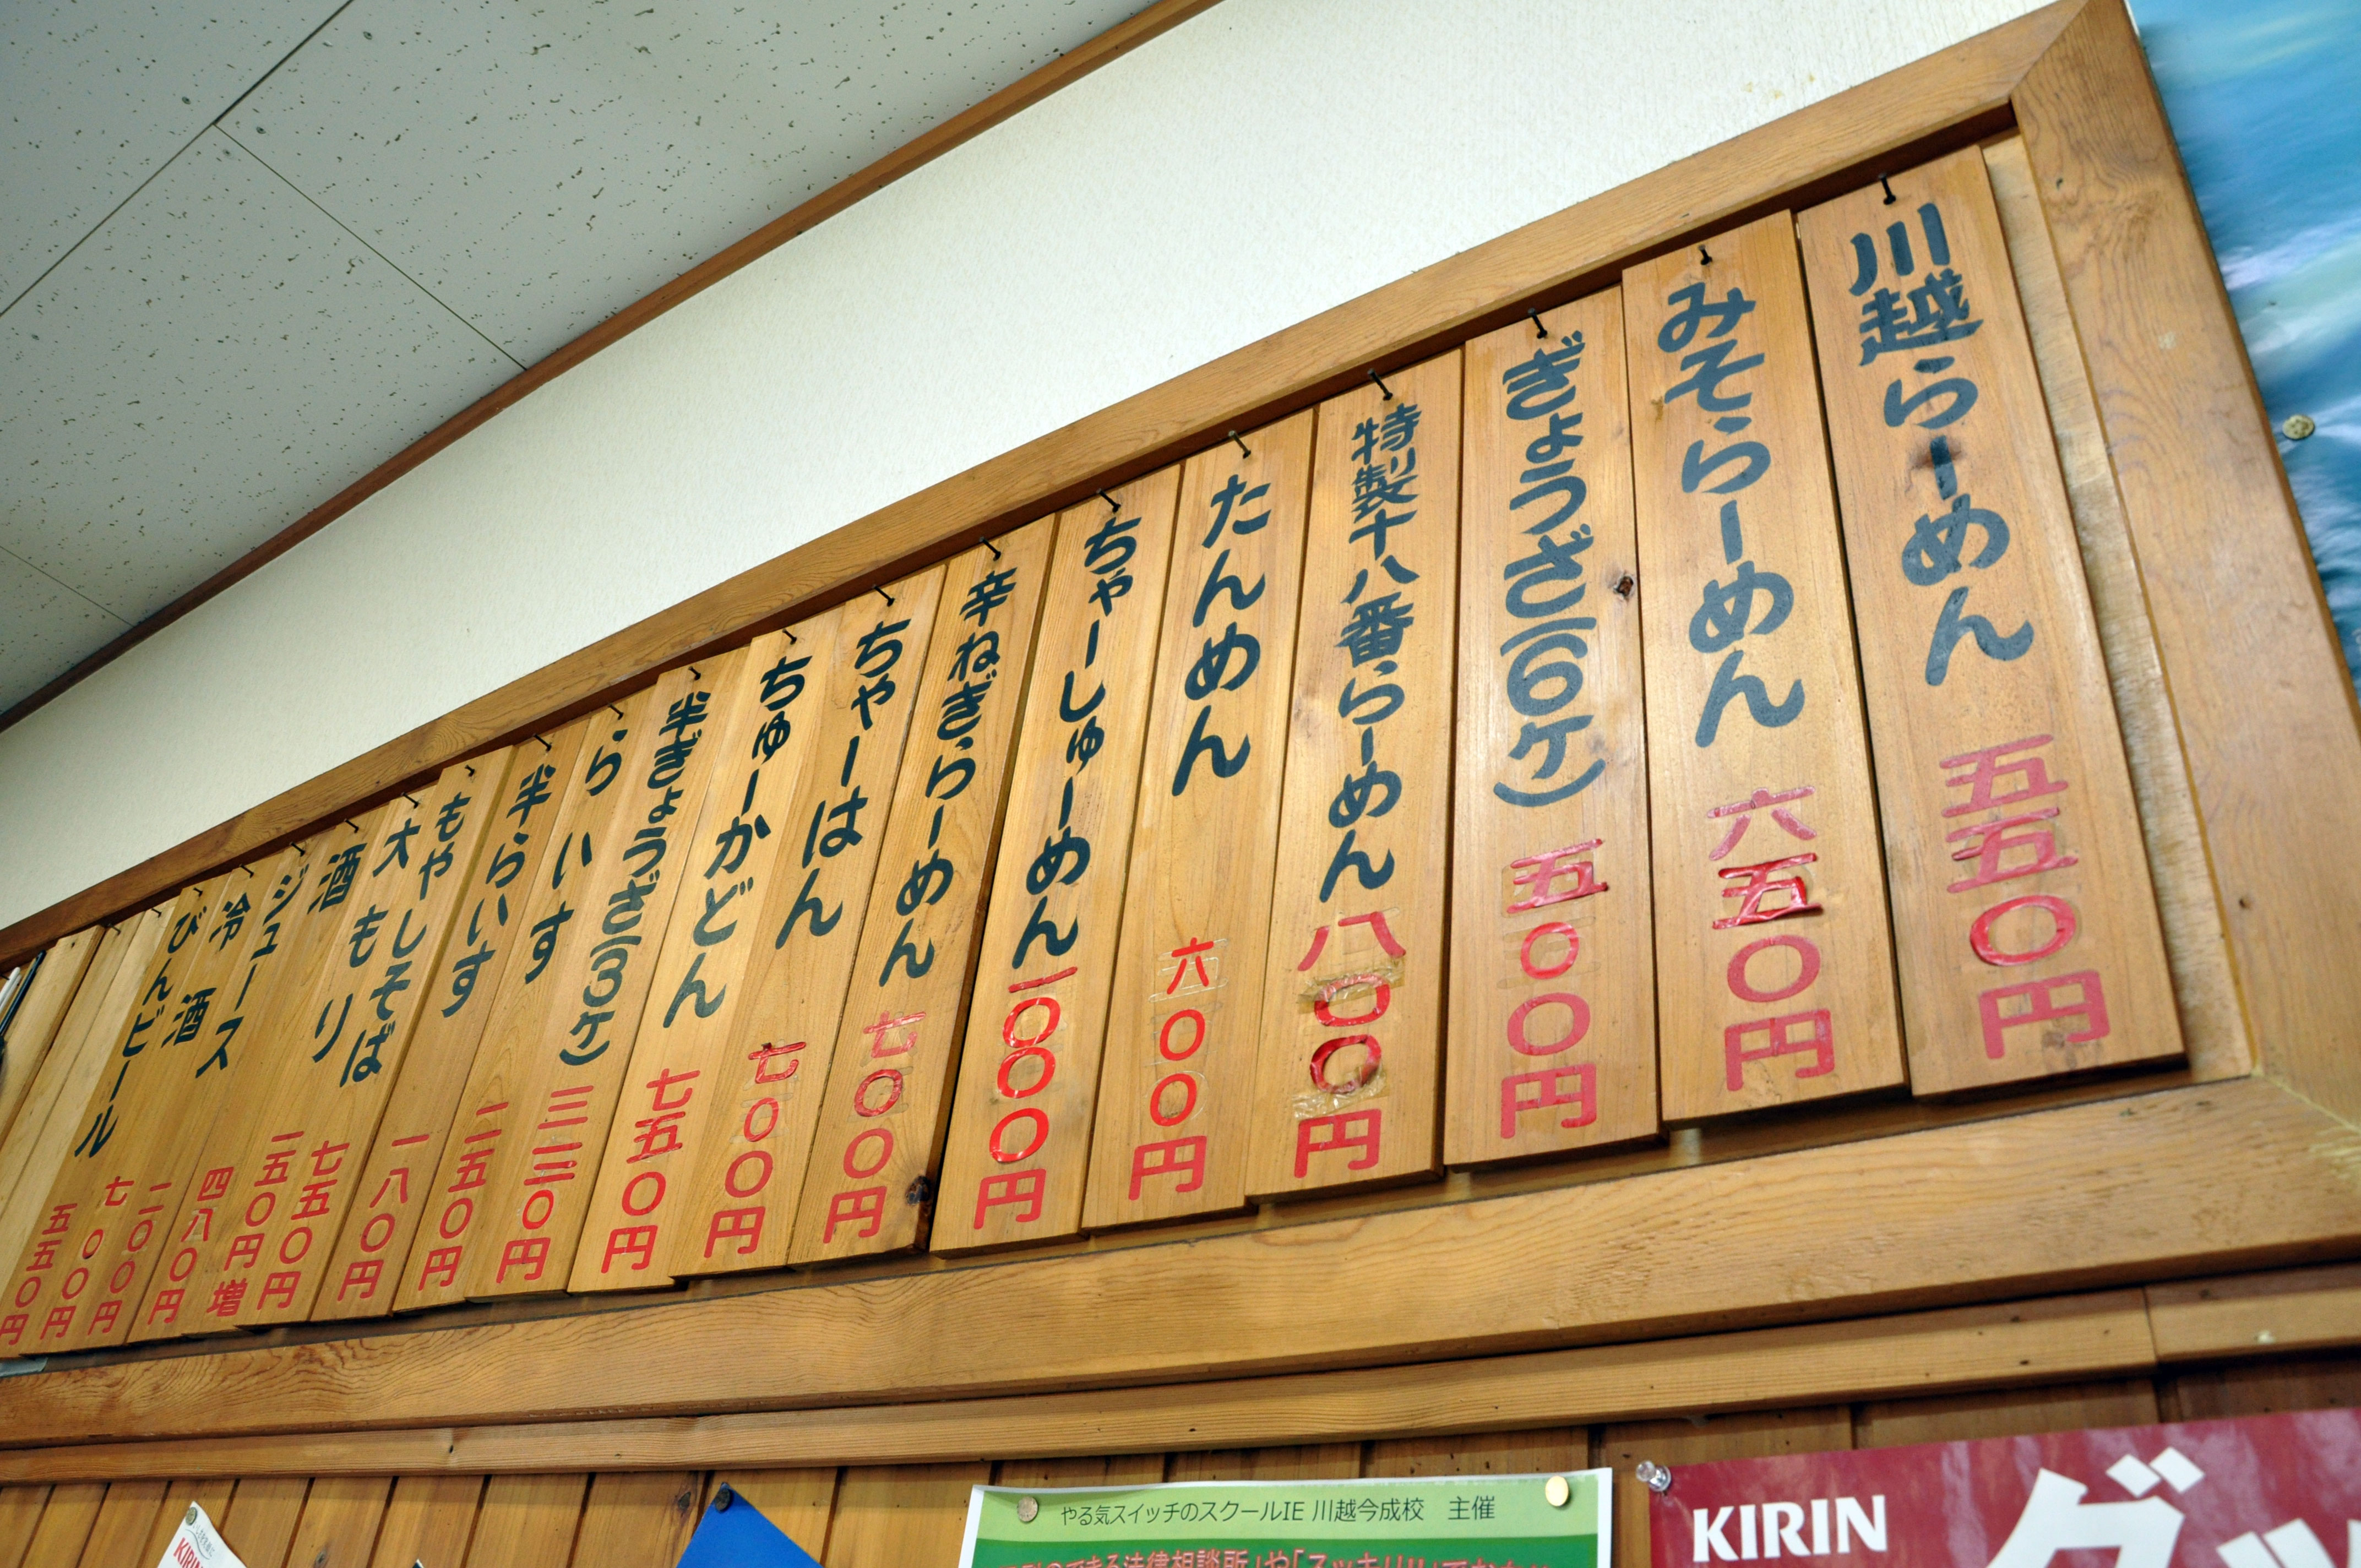 川越らーめん 五五〇円
みそらーめん 六五〇円
ぎょうざ(6ケ) 五〇〇円
特製十八番らーめん 八〇〇円
たんめん 六〇〇円
ちゃーしゅーめん 一〇〇〇円
辛ねぎらーめん 七〇〇円
ちゃーはん 七〇〇円
ちゅーかどん 七五〇円
半ぎょうざ(3ケ)
らいす 二五〇円
半らいす 一八〇円
もやしそば 七五〇円
大もり 一五〇円増
酒 四八〇円
ジュース 二〇〇円
冷酒 七〇〇円
びんビール 五五〇円
五五〇円
やる気スイッチのスクールIE 川越今成校 主催
KIRIN
KIRIN